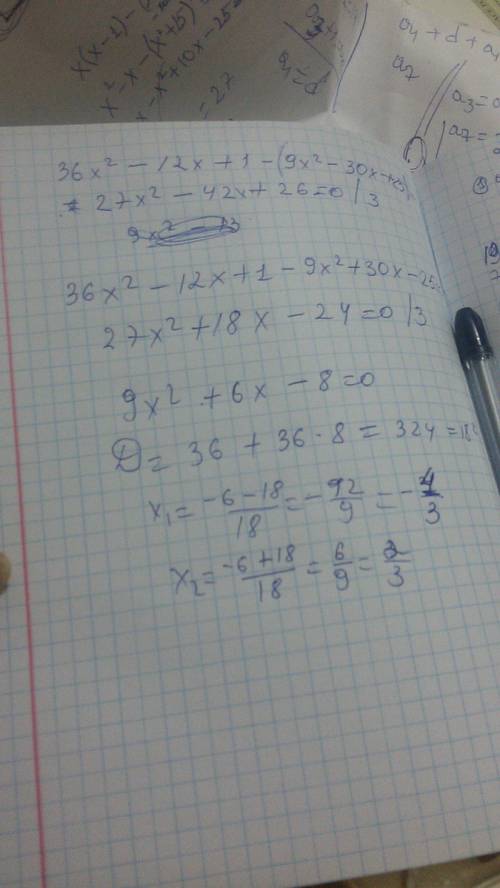 x(x-1)-(
x²-x-(x²+5)
-x²+10x-25
=27
a₁=d
a₁+d+a₁
a₇
a₃=
a₇=
36x²-12x+1-(9x²-30x+25)
27x²-42x+26=0 |3
9x²-13
36x²-12x+1-9x²+30x-25=
27x²+18x-24=0 |3
9x²+6x-8=0
D=36+36·8=324=18²
x₁=\frac{-6-18}{18}=-\frac{12}{9}=-\frac{4}{3}
x₂=\frac{-6+18}{18}=\frac{6}{9}=\frac{2}{3}